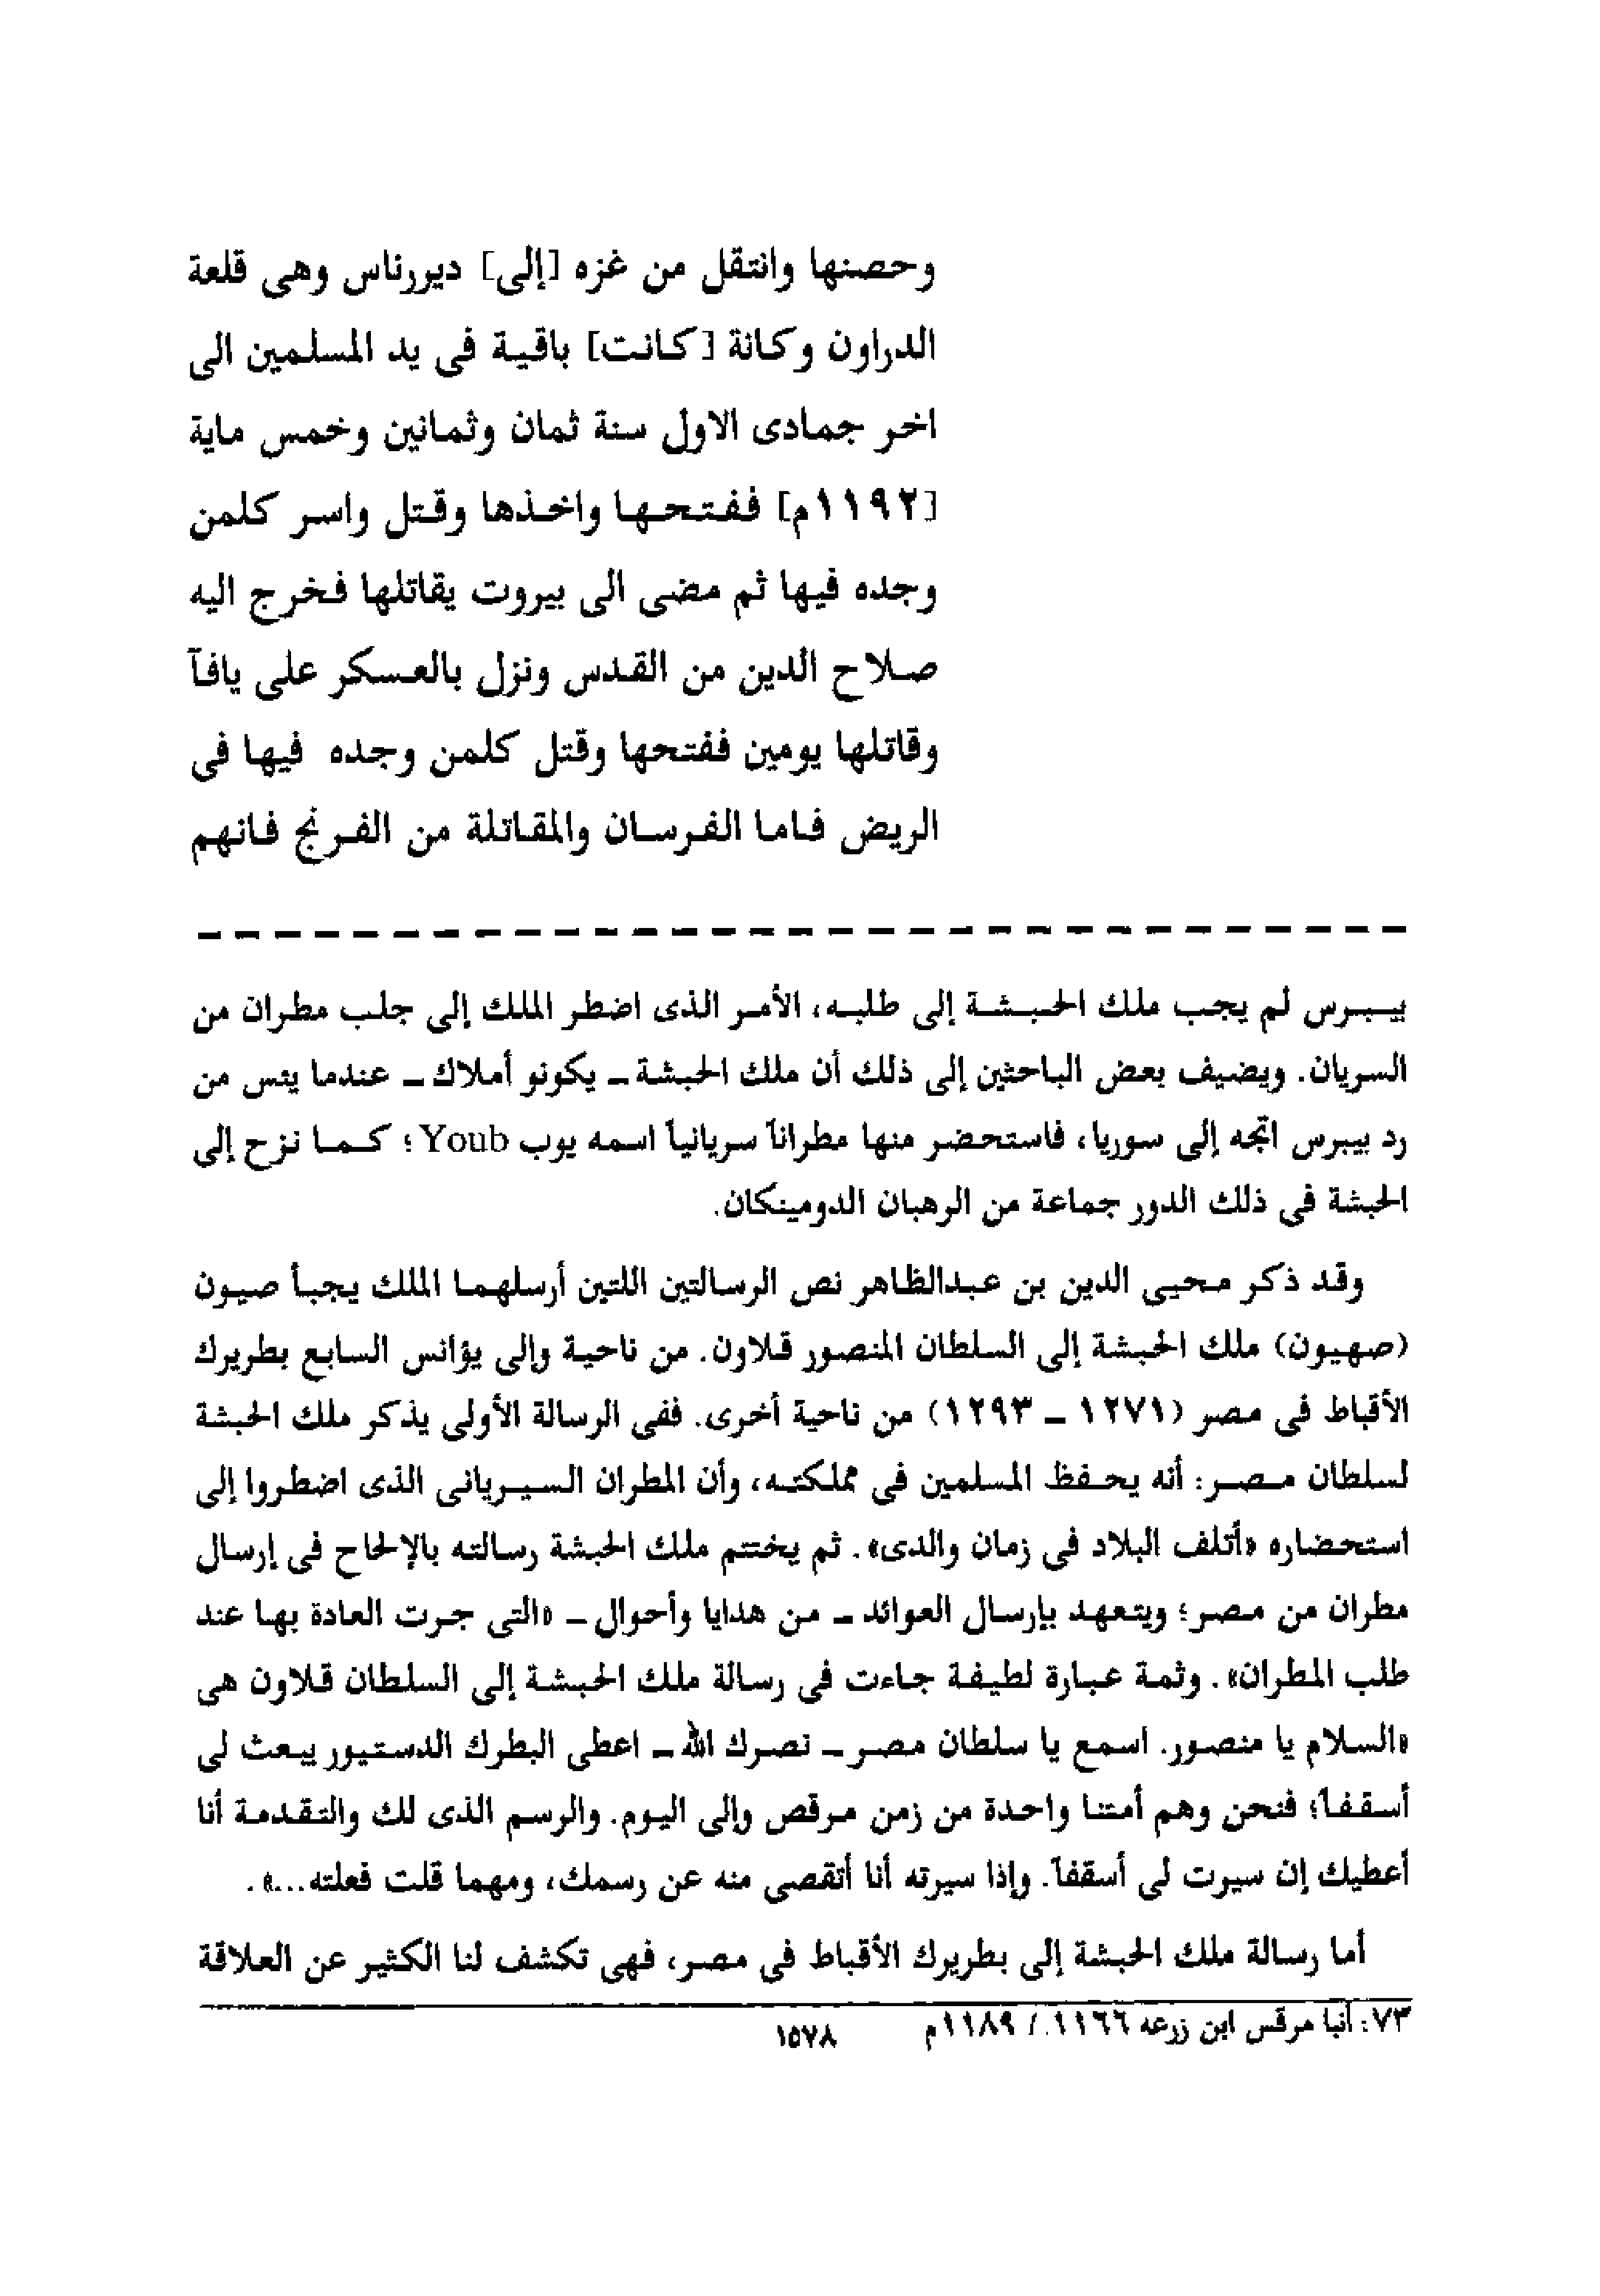 وحصنها وانتقل من غزه [إلى] ديررناس وهى قلعة
الدراون وكانة [كانت] باقية فى يد المسلمين الى
اخر جمادى الاول سنة ثمان وثمانين وخمس ماية
[١١٩٢م] ففتحها واخذها وقتل واسر كلمن
وجده فيها ثم مضى الى بيروت يقاتلها فخرج اليه
صلاح الدين من القدس ونزل بالعسكر على يافآ
وقاتلها يومين ففتحها وقتل كلمن وجده فيها فى
الريض فاما الفرسان والمقاتلة من الفرنج فانهم
بيبرس لم يجب ملك الحبشة إلى طلبه، الأمر الذى اضطر الملك إلى جلب مطران من
السريان. ويضيف بعض الباحثين إلى ذلك أن ملك الحبشة ــ يكونو أملاك ــ عندما يئس من
رد بيبرس اتجه إلى سوريا، فاستحضر منها مطراناً سريانياً اسمه يوب Youb؛ كما نزح إلى
الحبشة فى ذلك الدور جماعة من الرهبان الدومينكان.
وقد ذكر محيى الدين بن عبدالظاهر نص الرسالتين اللتين أرسلهما الملك يجبأ صيون
(صهيون) ملك الحبشة إلى السلطان المنصور قلاون. من ناحية وإلى يؤانس السابع بطريرك
الأقباط فى مصر (١٢٧١ ــ ١٢٩٣) من ناحية أخرى. ففى الرسالة الأولى يذكر ملك الحبشة
لسلطان مصر: أنه يحفظ المسلمين فى مملكته، وأن المطران السيريانى الذى اضطروا إلى
استحضاره «أتلف البلاد فى زمان والدى». ثم يختتم ملك الحبشة رسالته بالإلحاح فى إرسال
مطران من مصر؛ ويتعهد بإرسال العوائد ــ من هدايا وأحوال ــ «التى جرت العادة بها عند
طلب المطران». وثمة عبارة لطيفة جاءت فى رسالة ملك الحبشة إلى السلطان قلاون هى
«السلام يا منصور. اسمع يا سلطان مصر ــ نصرك الله ــ اعطى البطرك الدستيور يبعث لى
أسقفاً؛ فنحن وهم أمتنا واحدة من زمن مرقص وإلى اليوم. والرسم الذى لك والتقدمة أنا
أعطيك إن سيرت لى أسقفاً. وإذا سيرته أنا أتقصى منه عن رسمك، ومهما قلت فعلته...».
أما رسالة ملك الحبشة إلى بطريرك الأقباط فى مصر، فهى تكشف لنا الكثير عن العلاقة
٧٣: أنبا مرقس ابن زرعه ١١٦٦. / ١١٨٩م ١٥٧٨